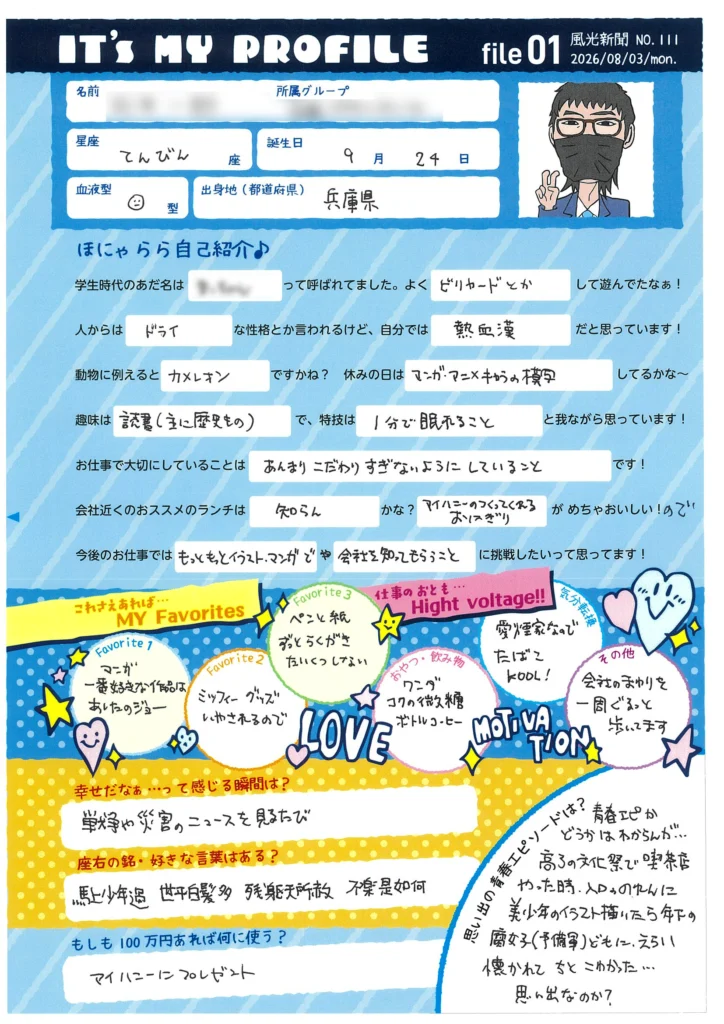 IT's MY PROFILE
file 01
風光新聞 NO.111
2026/08/03/mon.
名前
所属グループ
星座 てんびん 座
誕生日 9 月 24 日
血液型 型
出身地(都道府県) 兵庫県
ほにゃらら自己紹介♪
学生時代のあだ名は って呼ばれてました。よく ビリヤードとか して遊んでたなぁ!
人からは ドライ な性格とか言われるけど、自分では 熱血漢 だと思っています!
動物に例えると カメレオン ですかね? 休みの日は マンガ・アニメキャラの模写 してるかな〜
趣味は 読書(主に歴史もの) で、特技は 1分で眠れること と我ながら思っています!
お仕事で大切にしていることは あんまりこだわりすぎないようにしていること です!
会社近くのおススメのランチは 知らん かな? アイハニーのつくってくれる
おにぎり が めちゃおいしい!ので
今後のお仕事では もっともっとイラスト、マンガで や 会社を知ってもらうこと に挑戦したいって思ってます!
これさえあれば…
MY Favorites
Favorite 1
マンガ
一番好きな作品は
あしたのジョー
Favorite 2
ミッフィーグッズ
いやされるので
Favorite 3
ペンと紙
ずっとらくがき
たいくつしない
LOVE
仕事のおとも…
Hight voltage!!
おやつ・飲み物
ワンダ
コクの微糖
ボトルコーヒー
気分転換
愛煙家なので
たばこ
KOOL!
その他
会社のまわりを
一周ぐるっと
歩いてます
MOTIVA
TION
幸せだなぁ…って感じる瞬間は?
戦争や災害のニュースを見るたび
座右の銘・好きな言葉はある?
馬上少年過 世平白髪多 残躯天所赦 不楽是如何
もしも100万円あれば何に使う?
アイハニーにプレゼント
思い出の青春エピソードは?
青春エピか
どうかはわからんが…
高3の文化祭で喫茶店
やった時、入口ののれんに
美少年のイラスト描いたら年下の
腐女子(予備軍)どもに、えらい
懐かれて ちと こわかった…
思い出なのか?